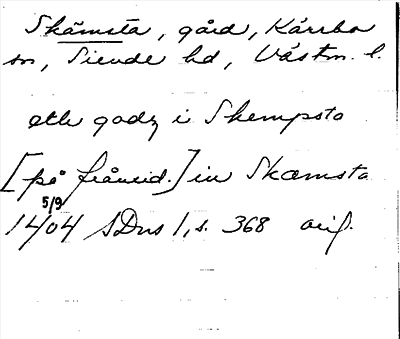 Skämsta, gård, Kärrbo
sn, Siende hd, Västm. l.
ett godz i Skempsta
[på frånsid.] in Skæmsta
5/9
1404 SDns 1, s. 368 orig.